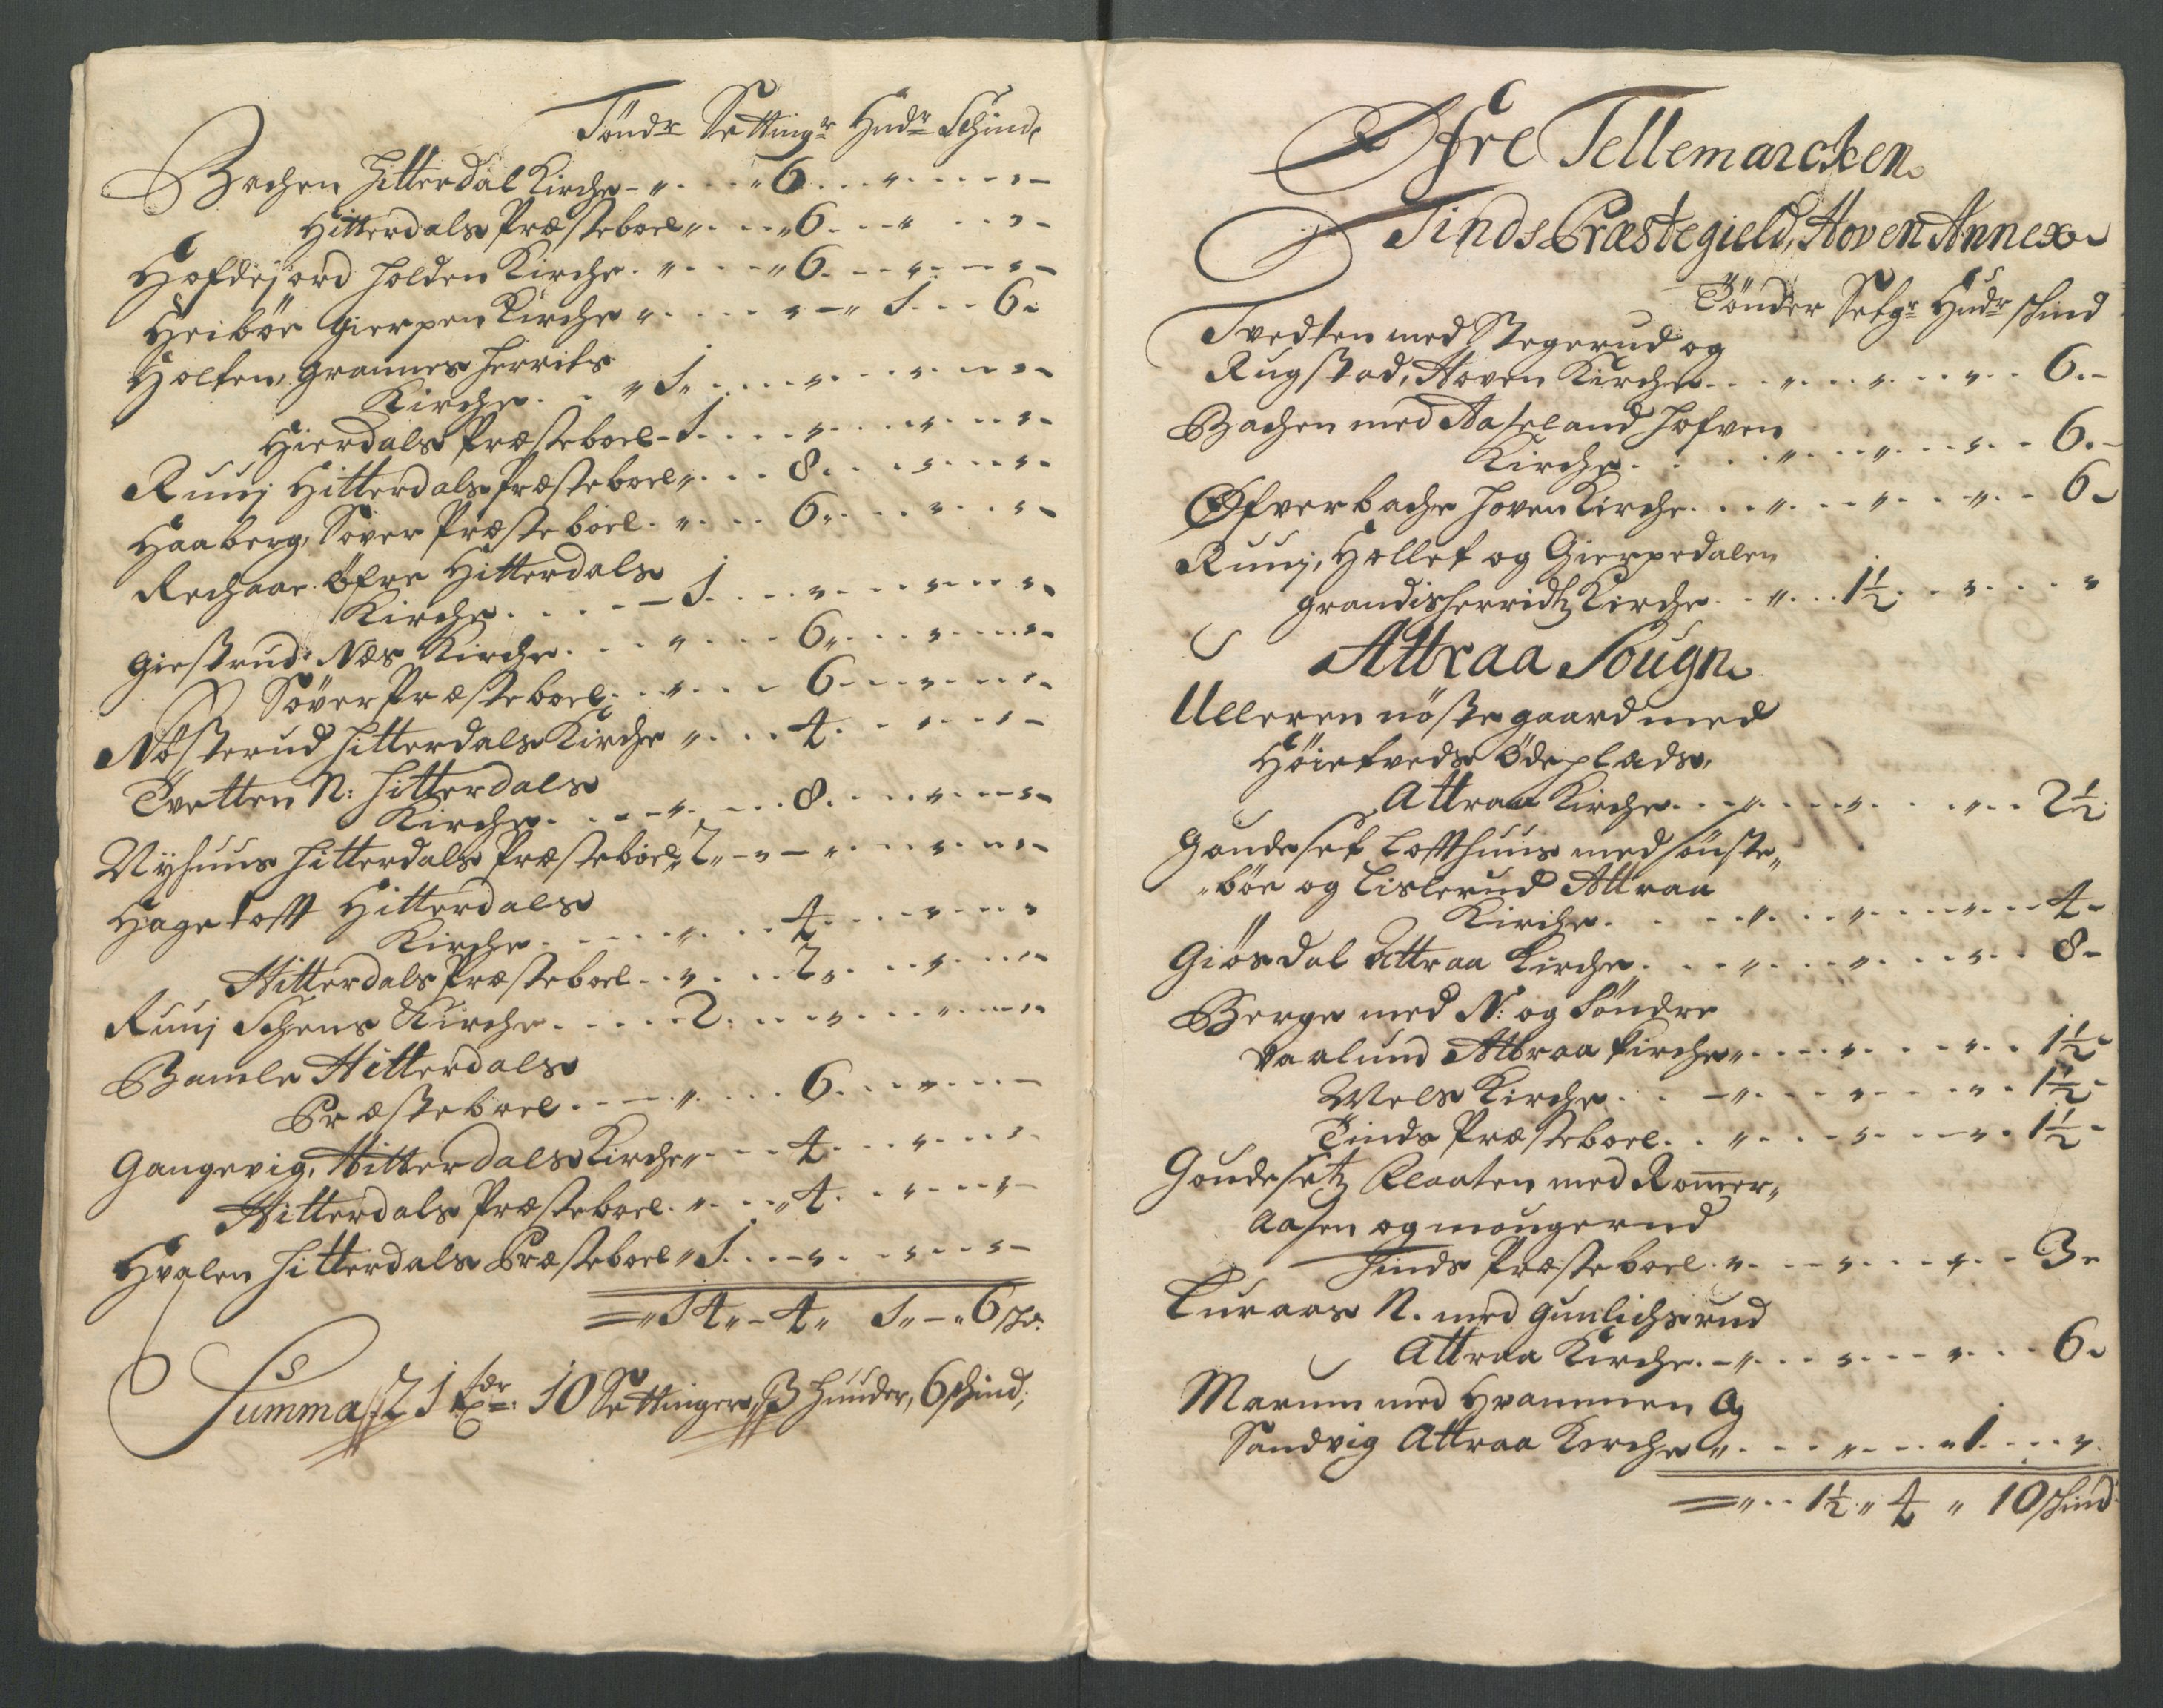 Tøndr Settingr Hudr Schind
Bachen Hitterdal Kirche - „ . . . „ 6 . . . „ . . . . „ -
Hitterdals Præsteboel „ . . . „ 6 . . . „ . . „ -
Hofdejord Holden Kirche . „ . . . „ 6 . . . „ . - - „ -
Heibøe Gierpen Kirche „ . . . . „ - „ 1 . . . 6 „
Holten, Grannes Herrits
Kirche . . „ 1 „ . . . . „ . . . „ . . . „ -
Hierdals Præsteboel - 1 . . . . „ . . . . „ . . . „ -
Ruuj Hitterdals Præsteboel „ . . . 8 . . . „ . . . „ -
Haaberg, Søver Præsteboel . „ . . . 6 „ . . . „ . . . „ -
Rechaar Øfre Hitterdals
Kirche . . . . - 1 . . . „ . . . „ . . . „
Giestrud Næs Kirche . . . „ . . . 6 „ . . . „ . . . „ -
Søver Præsteboel . . „ . . . 6 . . . „ . . . „ -
Nøsterud Hitterdals Kirche „ . . . 4 . . . „ . . „ -
Tvetten N: Hitterdals
Kirche . . . - „ . . . 8 . . . „ . . . „ -
Nÿhuus Hitterdals Præsteboel „ 2 „ - „ - „ . . . „ . . . „ -
Hagetofft Hitterdals
Kirche . . . . . „ . . . 4 . . . „ . . . „
Hitterdals Præsteboel . . „ . . . 2 „ . . . „ . . . „ -
Ruuj Schens Kirche . . . . . 2 . . . „ . . . „ . . . „ -
Bamle Hitterdals
Præsteboel . . - - . „ . . . 6 . . . „ . . . -
Gangevig, Hitterdals Kirche „ . . . 4 . . . „ . . . „ -
Hitterdals Præsteboel . „ . . . „ 4 . . „ . . . „ -
Hvalen Hitterdals Præsteboel „ 1 . . . - „ . . „ . . . „ -
= „ 14 „ - 4 „ 1 „ - „ 6 sk.
Summa 21 tdr: 10 Settinger, 3 huuder, 6 skind,
Øfre Tellemarcken
Tinds Præstegield, Hoven Annex
Tönder Setgr Hudr skind
Tvedten med Stegerud og
Rugstad, Hoven Kirche . . . „ . . . „ . . . „ . . 6 . -
Bachen med Aaseland Hofven
Kirche . . . . . „ . . . „ . . . „ . . 6 . -
Øfverbache Hoven Kirche . . . „ . . . „ . . . „ . . 6 -
Ruuj, Hollet og Gierpedalen
Grandisherridtz Kirche . . „ . . . 1½ . . „ . . . . „
Attraa Sougn
Ulleren nøste gaard med
Høietveds Ødeplads,
Attraa Kirche . . . „ . . . . „ . . . . „ . . 2½
Goudeset Loffthuus med sønste„
„bøe og Lislerud Attraa
Kirche . . . . . „ . . . „ . . . „ . . . 4 -
Giøsdal Attraa Kirche . . . „ . . . „ . . . „ . . 8 -
Berge med N: og Søndre
Vaalund Attraa Kirche „ . . . . „ . . . „ . . 1½ -
Mels Kirche . . - „ . . . „ . . . „ . 1½ -
Tinds Præsteboel . . „ . . . „ . . - „ . 1½ -
Goudesetz Claaten med Romer„
aasen og mougerud
Tinds Præsteboel . „ . . . „ . . . „ . . 3 „
Luraas N. med Gunlichsrud
Attraa Kirche . - „ . . . „ . . . „ . . . 6 „
Marum med Hvammen og
Sandvig Attraa Kirche „ . . . „ . . . „ 1 . . . „
= „ . . 1½ „ 4 „ 10 skind